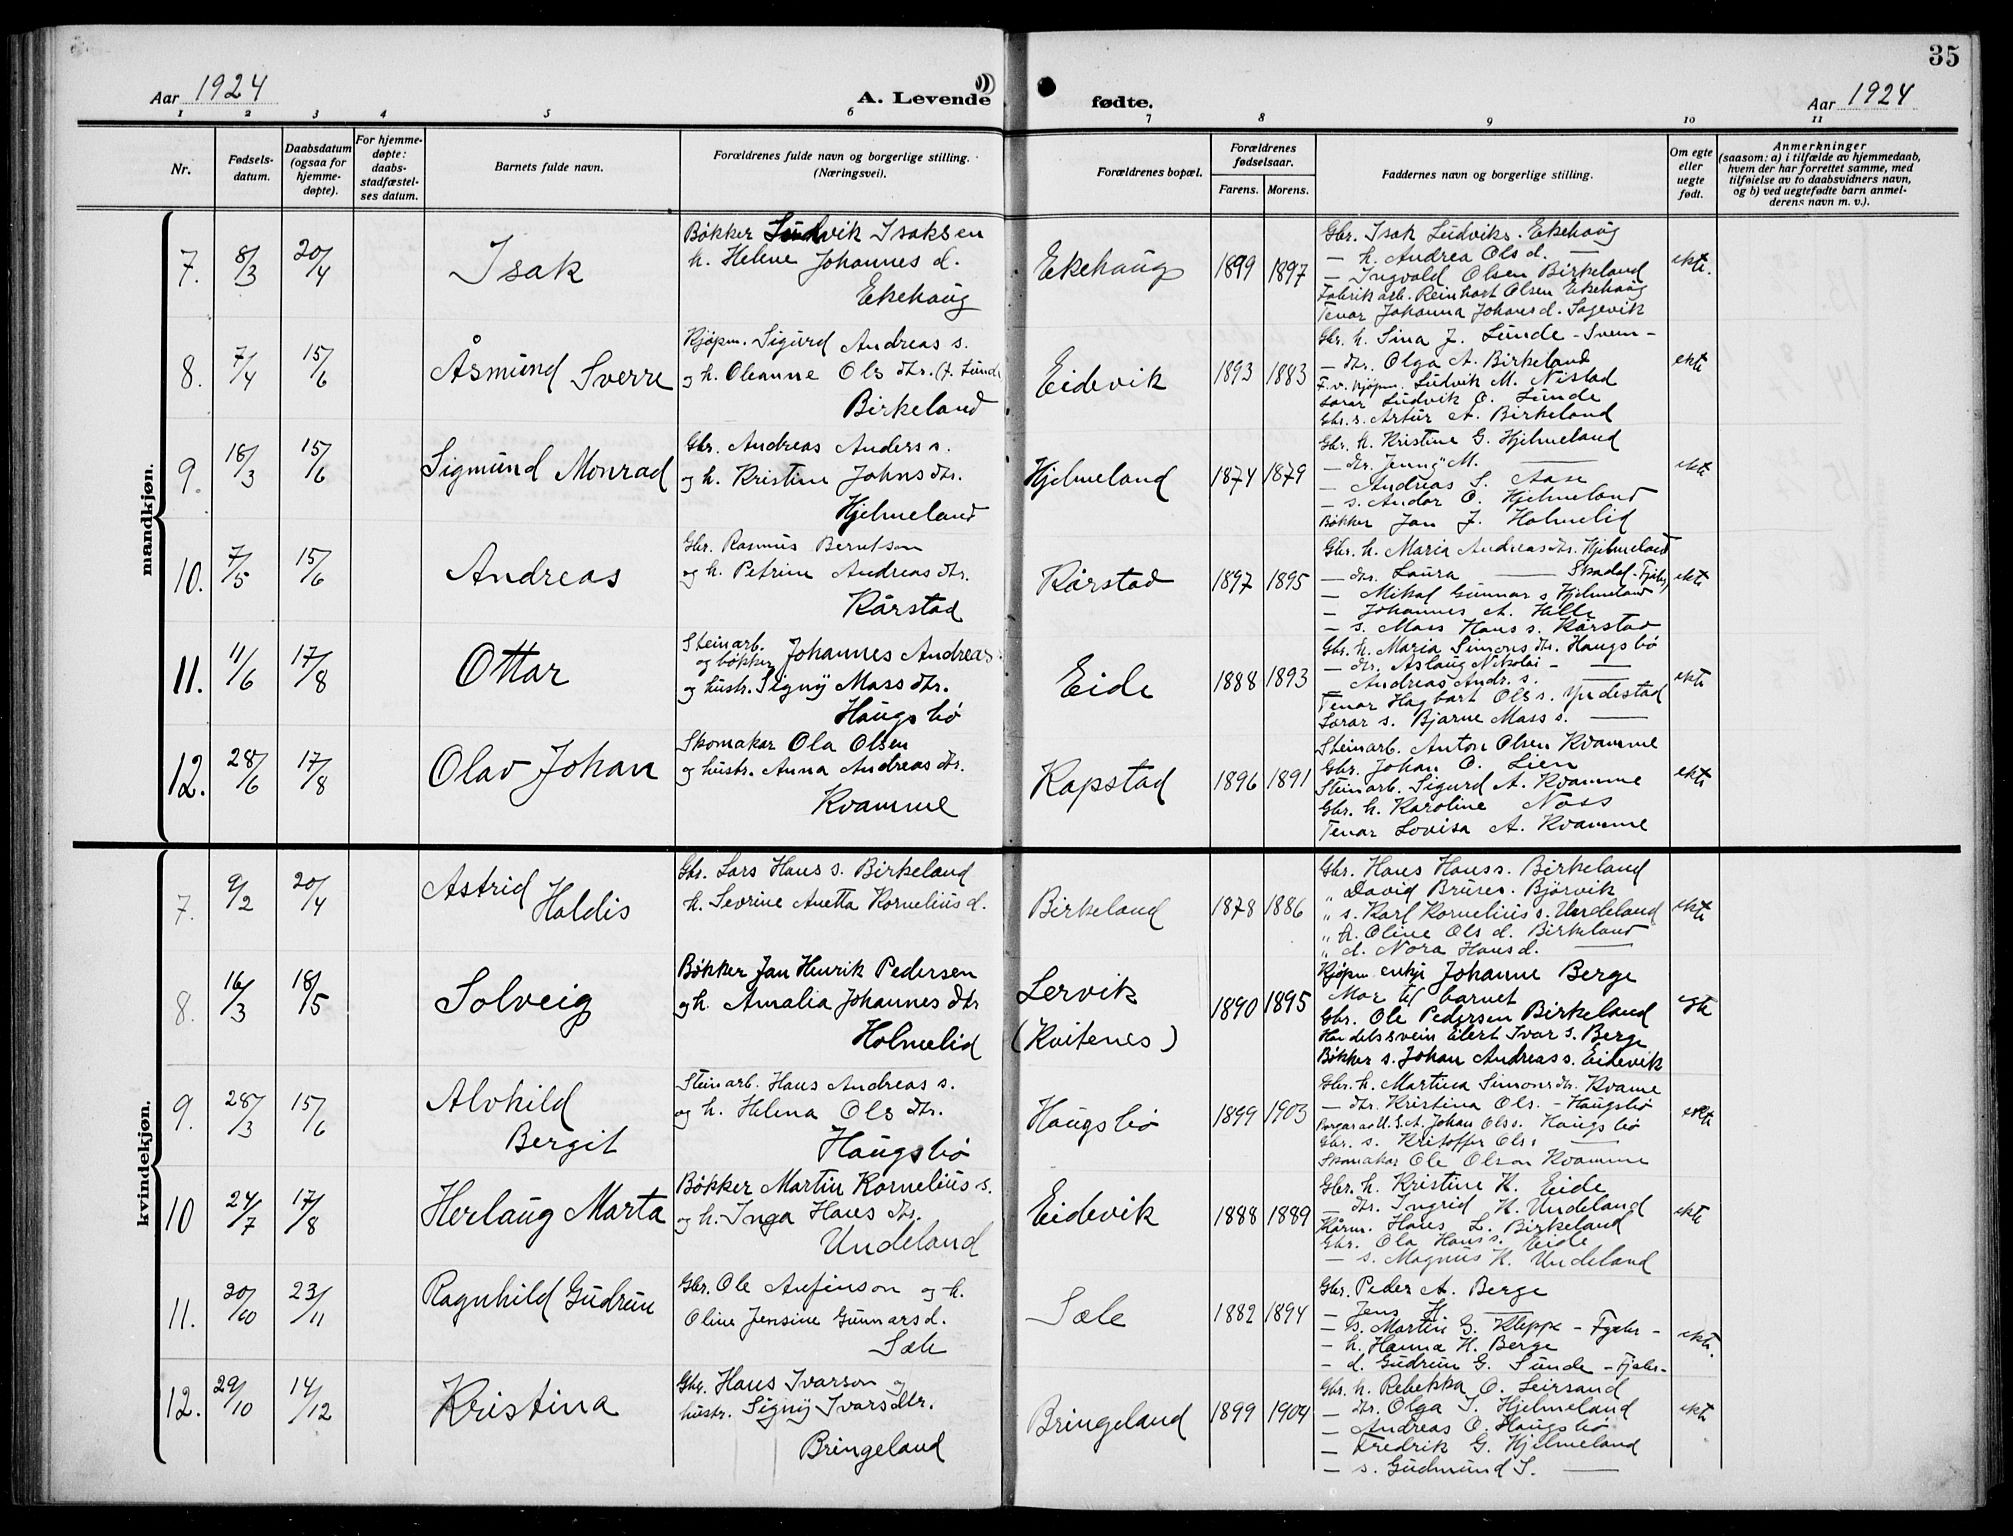 35
Aar 1924
A. Levende
fødte.
Aar 1924
1 2 3 4 5 6 7 8 9 10 11
Nr.
Fødsels-
datum.
Daabsdatum
(ogsaa for
hjemme-
døpte).
For hjemme-
døpte:
daabs-
stadfæstel-
ses datum.
Barnets fulde navn.
Forældrenes fulde navn og borgerlige stilling.
(Næringsvei).
Forældrenes bopæl.
Forældrenes
fødselsaar.
Farens. Morens.
Faddernes navn og borgerlige stilling.
Om egte
eller
uegte
født.
Anmerkninger
(saasom: a) i tilfælde av hjemmedaab,
hvem der har forrettet samme, med
tilføielse av to daabsvidners navn,
og b) ved uegtefødte barn anmel-
derens navn m. v.).
mandkjøn.
7. 8/3 20/4 Isak
Bøkker Ludvik Isaksen
h. Helene Johannes d.
Ekehaug
Ekehaug 1899 1897
Gbr. Isak Ludviks. Ekehaug
— h. Andrea Ols d. —
— Ingvald Olsen Birkeland
Fabrikarb. Reinhart Olsen Ekehaug
Tenar Johanna Johans d. Sagevik
ekte.
8. 7/4 15/6 Åsmund Sverre
Kjøpm. Sigurd Andreas s.
og h. Oleanne Ols dtr. (f. Lunde
Birkeland
Eidevik 1893 1883
Gbr. h. Sina J. Lunde - Svein -
— dtr. Olga A. Birkeland
F.v. kjøpm. Ludvik M. Nistad
Lærar Ludvik O. Lunde
Gbr. s. Artur A. Birkeland
ekte
9. 18/3 15/6 Sigmund Monrad
Gbr. Andreas Anders s.
og h. Kristine Johns dtr.
Hjelmeland
Hjelmeland 1874 1879
Gbr. h. Kristine G. Hjelmeland
— dtr. Jenny M. —
— Andreas S. Aase
— s. Andor O. Hjelmeland
Bøkker Jan J. Holmelid
ekte
10. 7/5 15/6 Andreas
Gbr. Rasmus Berntson
og h. Petrine Andreas dtr.
Kårstad
Kårstad 1897 1895
Gbr. h. Maria Andreas dtr. Hjelmeland
— dtr. Laura — Skadal - Fjaler
— Mikal Gunnar s Hjelmeland
— Johannes A. Hille
— s. Mass Hans s. Kårstad
ekte
11. 11/6 17/8 Ottar
Steinarb.
og bøkker Johannes Andreas s.
og hustr. Signy Mass dtr.
Haugsbø
Eide 1888 1893
Gbr. h. Maria Simons dtr. Haugsbø
— dtr. Aslaug Nikolai - —
— Andreas Andr. s. —
Tenar Hagbart Ols s. Yndestad
Lærar s. Bjarne Mass s. —
ekte
12. 28/6 17/8 Olav Johan
Skomakar Ola Olsen
og hustr. Anna Andreas dtr.
Kvamme
Rapstad 1896 1891
Steinarb. Anton Olsen Kvamme
Gbr. Johan O. Lien
Steinarb. Sigurd A. Kvamme
Gbr. h. Karoline Noss
Tenar Lovisa A. Kvamme
ekte
kvindekjøn.
7. 9/2 20/4 Astrid
Haldis
Gbr. Lars Hans s. Birkeland
h. Sevrine Anetta Kornelius d.
Birkeland 1878 1886
Gbr. Hans Hans s. Birkeland
„ David Bruses. Bjørvik
„ s. Karl Kornelius s. Undeland
„ h. Oline Ols d. Birkeland
„ d. Nora Hans d. —
ekte
8. 16/3 18/5 Solveig
Bøkker Jan Henrik Pedersen
og h. Amalia Johannes dtr
Holmelid
Lervik
(Kvitenes) 1890 1895
Kjøpm. enkje Johanne Berge
Mor til barnet
Gbr. Ole Pedersen Birkeland
Handelssvein Eilert Ivar s. Berge
Bøkker s. Johan Andreas s. Eidevik
egte
9. 28/3 15/6 Alvhild
Bergit
Steinarb. Hans Andreas s.
og h. Helena Ols dtr.
Haugsbø
Haugsbø 1899 1903
Gbr. h. Martina Simons dtr. Kvame
— dtr. Kristina Ols. - Haugsbø
Borgar av U.S.A. Johan Ols s. Haugsbø
Gbr. s. Kristoffer Ols s —
Skomakar Ole Olson Kvamme
ekte
10 24/7 17/8 Herlaug Marta
Bøkker Martin Kornelius s.
og h. Inga Hans dtr.
Undeland
Eidevik 1888 1889
Gbr. h. Kristine K. Eide
— dtr. Ingrid K. Undeland
Kårm. Hans L. Birkeland
Gbr. Ola Hans s. Eide
— s. Magnus K. Undeland
ekte
11. 20/10 23/11 Ragnhild Gudrun
Gbr. Ole Anfinson og h.
Oline Jensine Gunnars d.
Sæle
Sæle 1882 1894
Gbr. Peder A. Berge
— Jens H —
— s. Martin G. Kleppe - Fjaler -
— h. Hanna H. Berge
— d. Gudrun G. Sunde - Fjaler -
ekte.
12. 29/10 14/12 Kristina
Gbr. Hans Ivarson og
hustr. Signy Ivarsdtr.
Bringeland
Bringeland 1899 1904
Gbr. h. Rebekka O. Leirsand
— dtr. Olga I. Hjelmeland
— Andreas O. Haugsbø
— Fredrik G. Hjelmeland
— s. Gudmund I. —
ekte